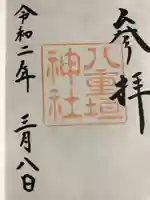 奉拝
八重垣
神社
令和二年
三月八日